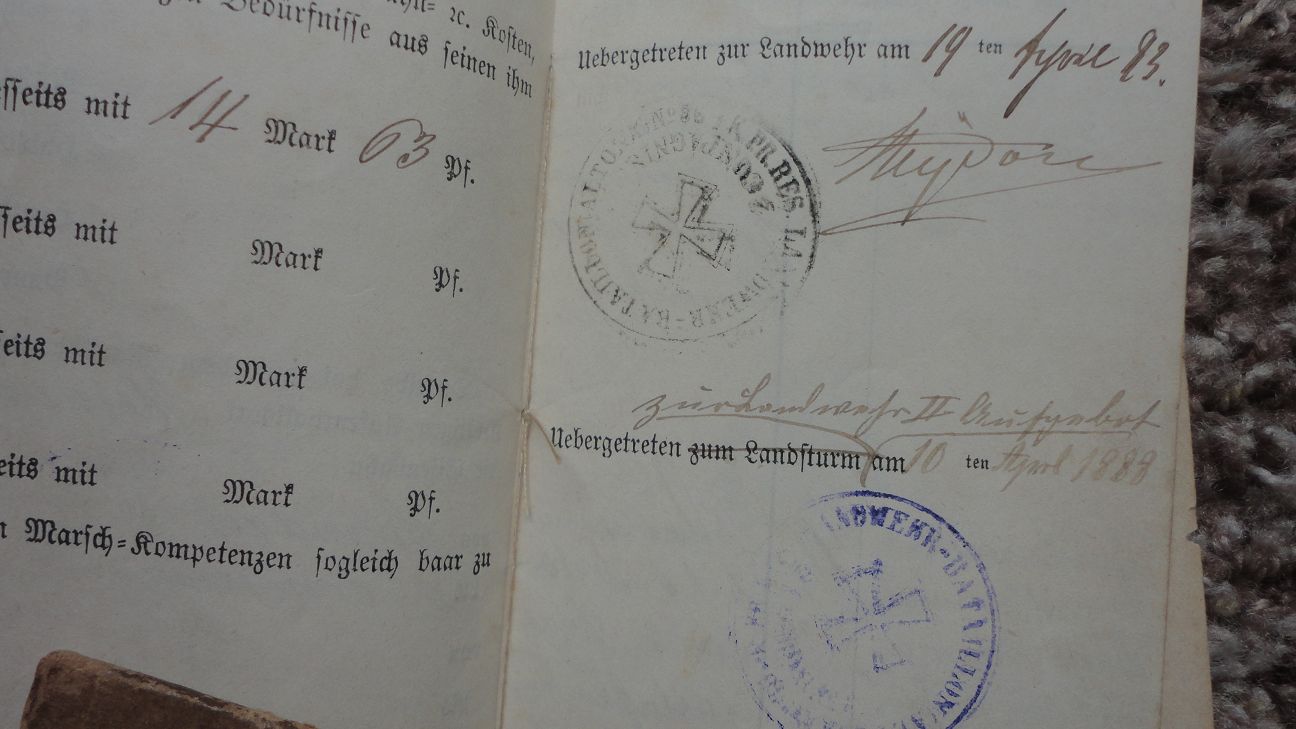 Kosten,
Bedürfnisse aus seinen ihm
seits mit 14 Mark 63 Pf.
seits mit Mark Pf.
seits mit Mark Pf.
eits mit Mark Pf.
Marsch=Kompetenzen sogleich baar zu
Uebergetreten zur Landwehr am 19 ten April 83.
K. PR. RES. LANDWEHR-BATAILLON ALTONA No 86
zur Landwehr II Aufgebot
Uebergetreten zum Landsturm am 10 ten April 1888
LANDWEHR-BATAILLON